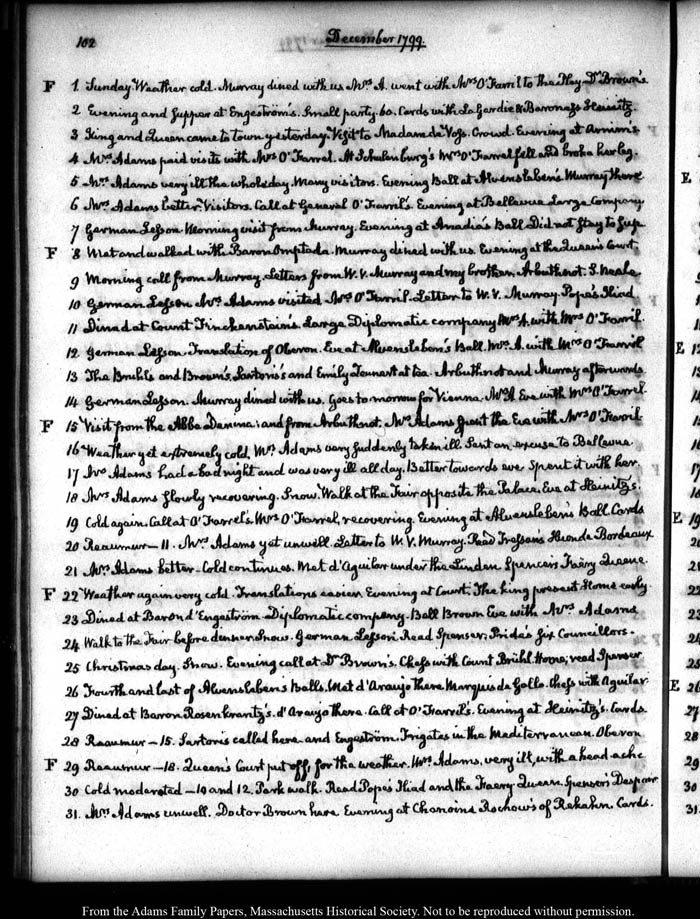 102
December 1799.
F 1. Sunday. Weather cold. Murray dined with us Mrs. A. went with Mrs O'Farril to the Play. Dr Brown's
2 Evening and Supper at Engeström's. Small party. 60. Cards with La Gardie & Baroness Heinitz.
3 King and Queen came to town yesterday. Visit to Madame de Voss. Crowd. Evening at Arnim's
4 Mrs. Adams paid visits with Mrs O'Farrel. At Schulenburg's Mrs O'Farrel fell and broke her leg.
5 Mrs. Adams very ill the whole day. Many visitors. Evening Ball at Alvensleben's. Murray there
6 Mrs. Adams better. Visitors. Call at General O'Farril's. Evening at Bellevue Large Company
7 German Lesson. Morning visit from Murray. Evening at Anadia's Ball. Did not stay to Sup
F 8 Met and walked with Baron Ompteda. Murray dined with us. Evening at the Queen's Court.
9 Morning call from Murray. Letters from W. V. Murray and my brother. Arbuthnot. S. Neale
10 German Lesson Mrs. Adams visited Mrs. O'Farril. Letter to W. V. Murray. Pope's Iliad
11 Dined at Count Finckenstein's Large Diplomatic company Mrs A. with Mrs O'Farril.
12 German Lesson. Translation of Oberon. Eve at Alvensleben's Ball. Mrs. A. with Mrs O'Farril
13 The Bruhls and Brown's, Sartoris's and Emily at tea. Arbuthnot and Murray afterwards
14 German Lesson. Murray dined with us. Goes to morrow for Vienna. Mrs A Eve with Mrs O'Farrel
F 15 Visit from the Abbé Denina: and from Arbuthnot. Mrs Adams spent the Eve with Mrs O'Farril
16 Weather yet extremely cold. Mrs. Adams very suddenly taken ill. Sent an excuse to Bellevue.
17 Mrs Adams had a bad night and was very ill all day. Better towards eve. Spent it with her
18 Mrs Adams slowly recovering. Snow. Walk at the Fair opposite the Palace. Eve at Heinitz's.
19 Cold again. Call at O'Farrel's. Mrs O'Farrel, recovering. Evening at Alvensleben's Ball. Cards
20 Reaumur —11. Mrs. Adams yet unwell. Letter to W. V. Murray. Read Tressans Huonde Bordeaux
21 Mrs. Adams better. Cold continues. Met d'Aguilar under the Linden Spencers Faery Queene.
F 22 Weather again very cold. Translations easier. Evening at Court. The king present Home early
23 Dined at Baron d'Engeström Diplomatic company. Call Brown Eve with Mrs Adams
24 Walk to the Fair before dinner Snow. German Lesson. Read Spenser; Pride's six Councillors.
25 Christmas day. Snow. Evening call at Dr Brown's. Chess with Count Brühl. Home; read Spenser
26 Fourth and last of Alvensleben's Balls. Met d'Araujo there Marquis de Gallo. Chess with Aguilar
27 Dined at Baron Rosenkrantz's. d'Araujo there. Call at O'Farril's. Evening at Heinitz's. Cards
28 Reaumur —15. Sartoris called here and Engeström. Frigates in the Mediterranean. Oberon
F 29 Reaumur —18. Queen's Court put off, for the weather. Mrs. Adams, very ill, with a head-ache
30 Cold moderated —10 and 12. Park walk. Read Pope's Iliad and the Faery Queen. Spenser's Despair
31. Mrs. Adams unwell. Doctor Brown here Evening at Chanoine Rochow's of Rekahn Cards.
From the Adams Family Papers, Massachusetts Historical Society. Not to be reproduced without permission.